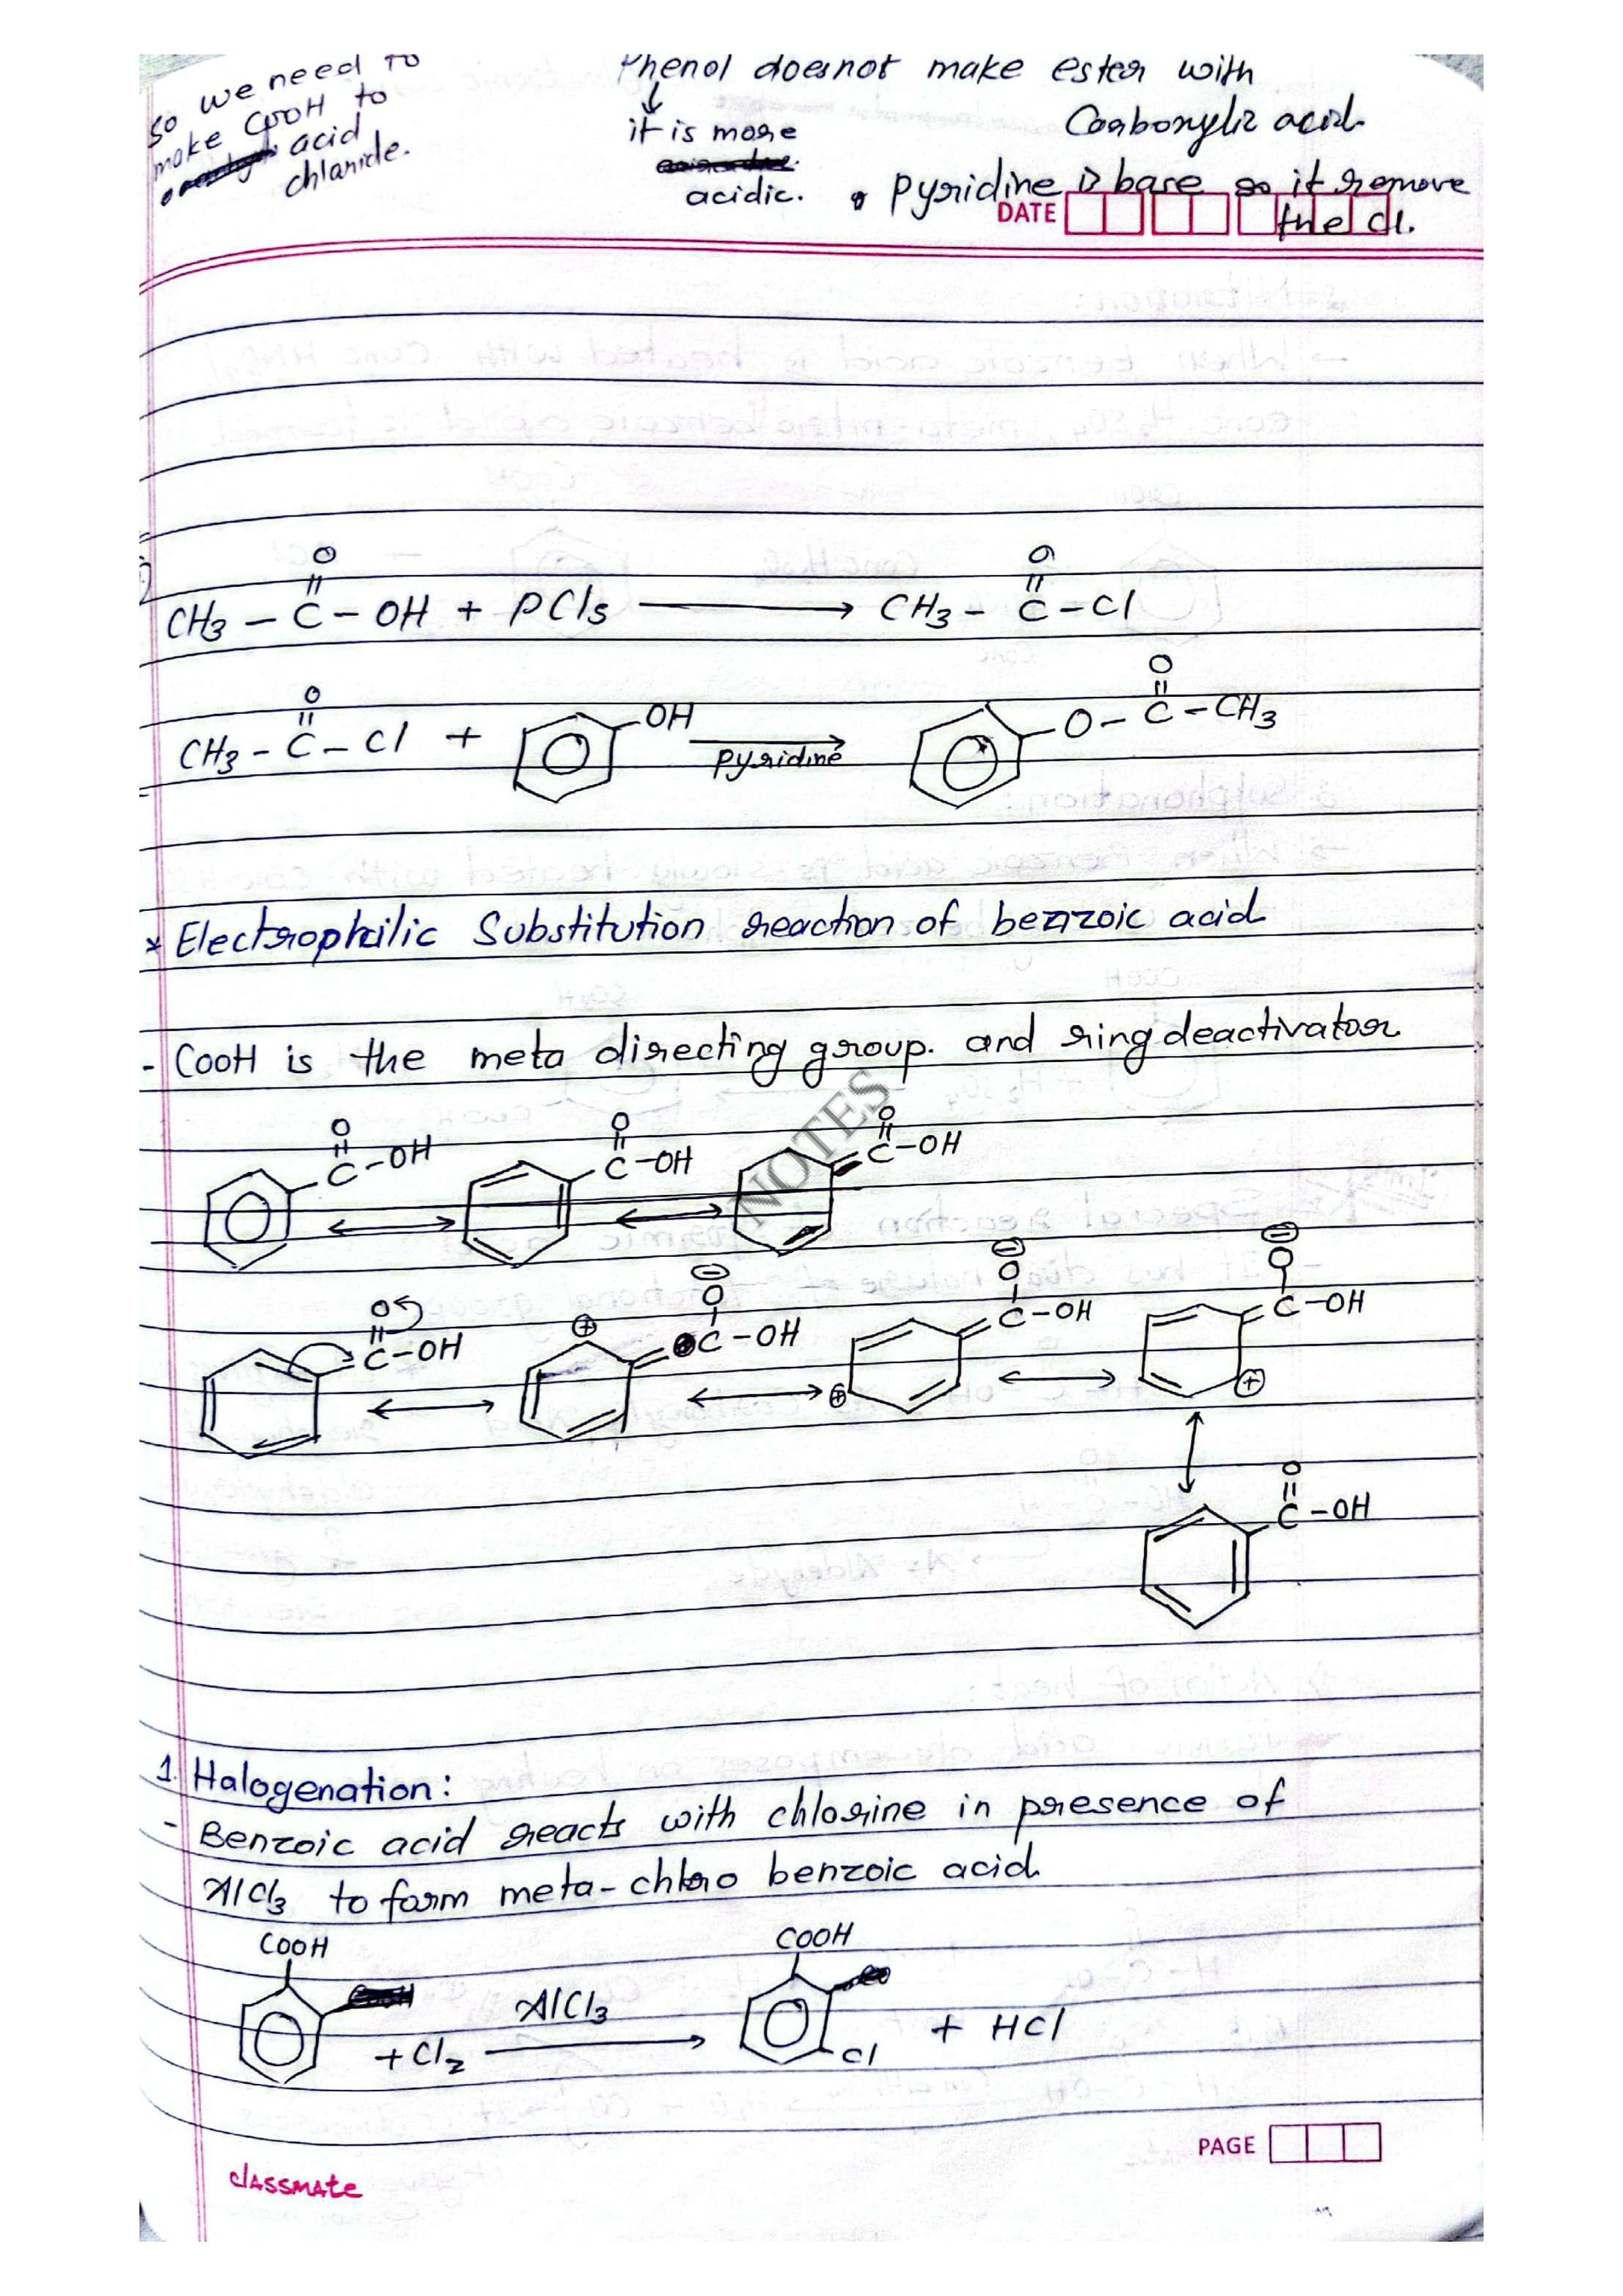 so we need to
make COOH to
acid
chloride.
Phenol doesnot make ester with
Carboxylic acid
it is more
acidic.
pyridine is base so it remove
the Cl.
DATE
O
CH3 - C - OH + PCl5 → CH3 - C - Cl
O
CH3 - C - Cl + OH pyridine → O - C - CH3
* Electrophilic Substitution reaction of benzoic acid
- COOH is the meta directing group. and ring deactivator
O O O
C-OH ↔ C-OH ↔ C-OH
NOTES
O ⊖ O ⊖ O ⊖ O
C-OH ↔ ⊕ C-OH ↔ ⊕ C-OH ↔ C-OH ⊕
O
C-OH
1. Halogenation:
- Benzoic acid reacts with chlorine in presence of
AlCl3 to form meta-chloro benzoic acid
COOH COOH
+ Cl2 AlCl3 → Cl + HCl
PAGE
classmate